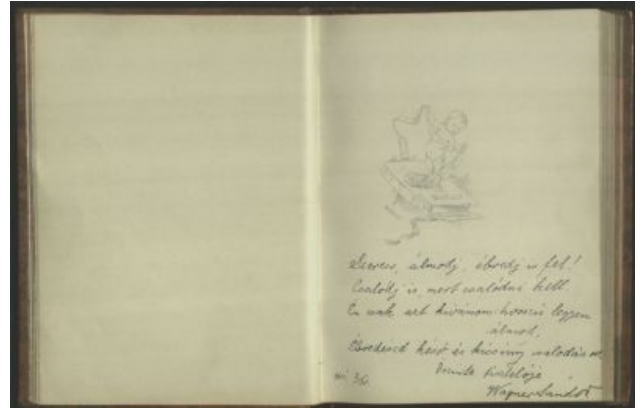 Szeress, álmodj, ébredj is fel!
Csalódj is, mert csalódni kell.
Én csak azt kivánom: hosszú legyen
álmod,
Ébredésed késő és kicsiny csalódásod.
őszinte tisztelője
Wagner Sándor